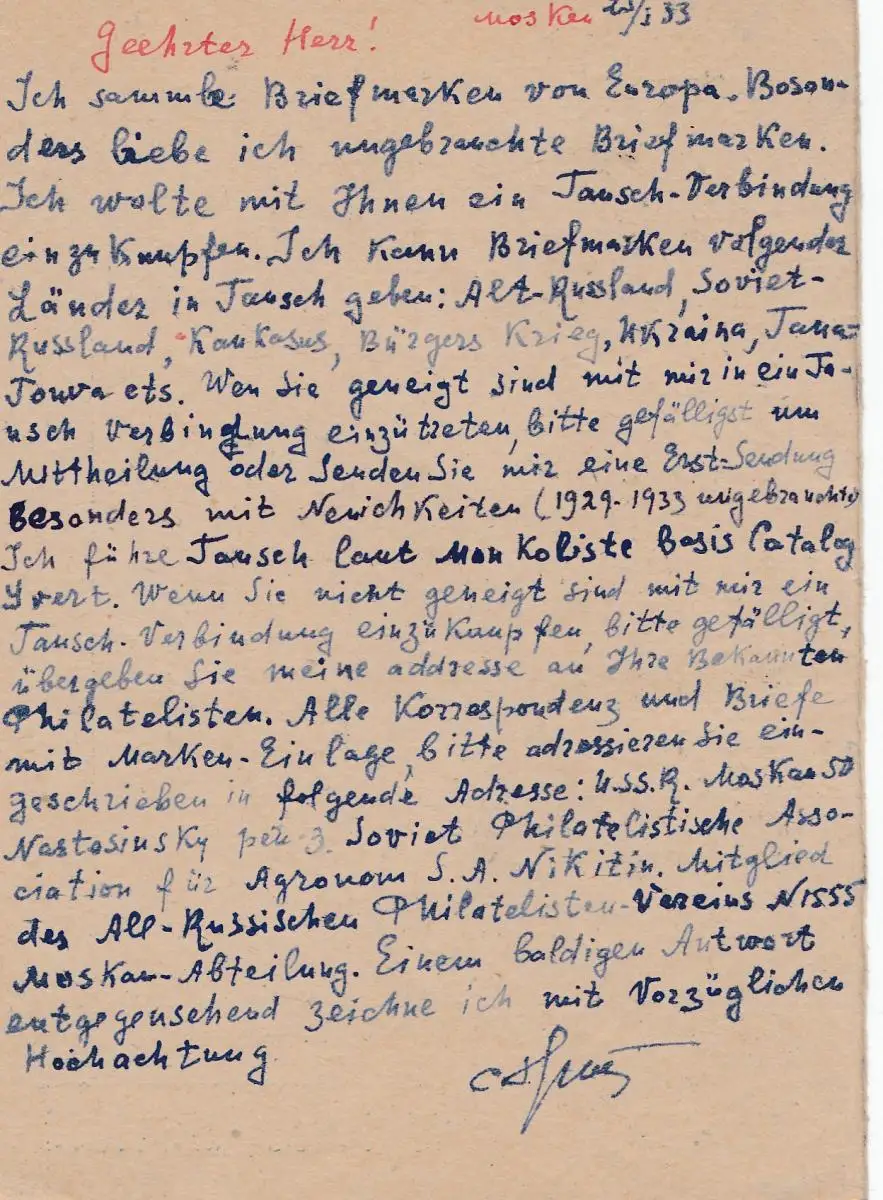 Moskau /I 33
Geehrter Herr!
Ich sammle Briefmarken von Europa. Boson-
ders liebe ich ungebrauchte Briefmarken.
Ich wolte mit Ihnen ein Tausch-Verbindung
einzuknupfen. Ich kann Briefmarken volgender
Länder in Tausch geben: Alt-Russland, Soviet-
Russland, Kaukasus, Bürgers Krieg, Ukraina, Tana-
Touva ets. Wen Sie geneigt sind mit mir in ein Ta-
usch Verbingung einzütreten, bitte gefälligst um
Mittheilung oder Senden Sie mir eine Erst-Sendung
besonders mit Neuichkeiten (1929-1933 ungebrauchte)
Ich führe Tausch laut Mankoliste Basis Catalog
Yvert. Wenn Sie nicht geneigt sind mit mir ein
Tausch-Verbindung einzükaupfen, bitte gefälligt,
übergeben Sie meine addresse an Ihre Bekannten
Philatelisten. Alle Korrespondenz und Briefe
mit Marken-Einlage, bitte adressieren Sie ein-
geschrieben in folgende Adresse: U.S.S.R. Moskau 50
Nastasinsky per 3. Soviet Philatelistische Asso-
ciation für Agronom S. A. Nikitin. Mitglied
des All-Russischen Philatelisten-Vereins N1555
Moskau-Abteilung. Einem baldigen Antwort
entgegensehend zeichne ich mit Vorzüglichen
Hochachtung